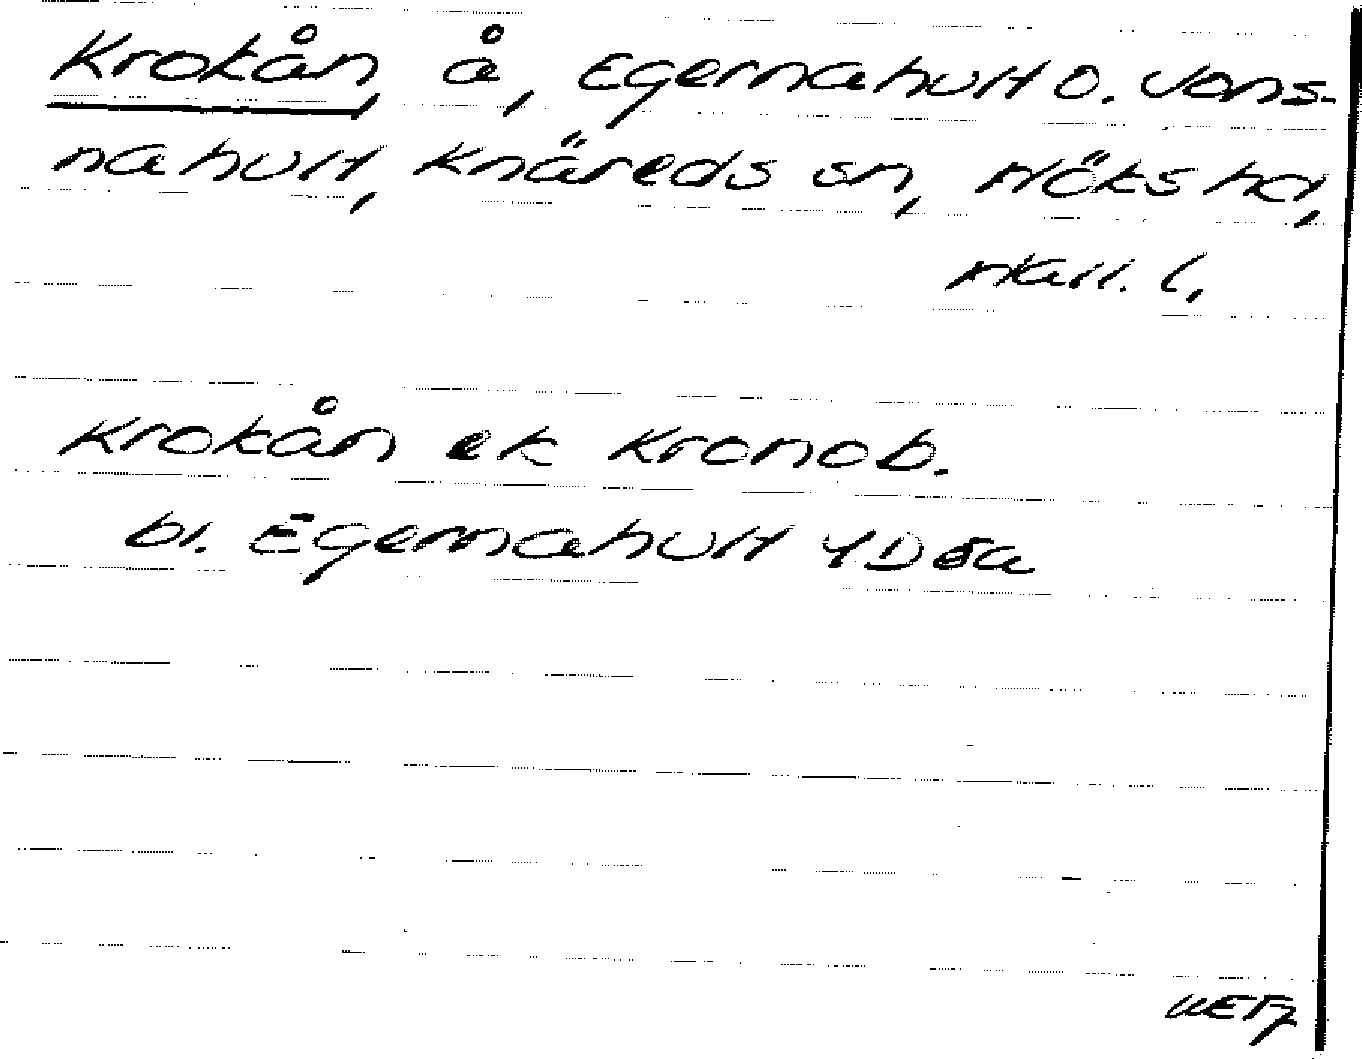 Krokån, å, Egernahult o. Jons-
nahult, Knäreds sn, Höks hd,
Hall. l,
Krokån ek Kronob.
bl. Egernahult 4D 5a